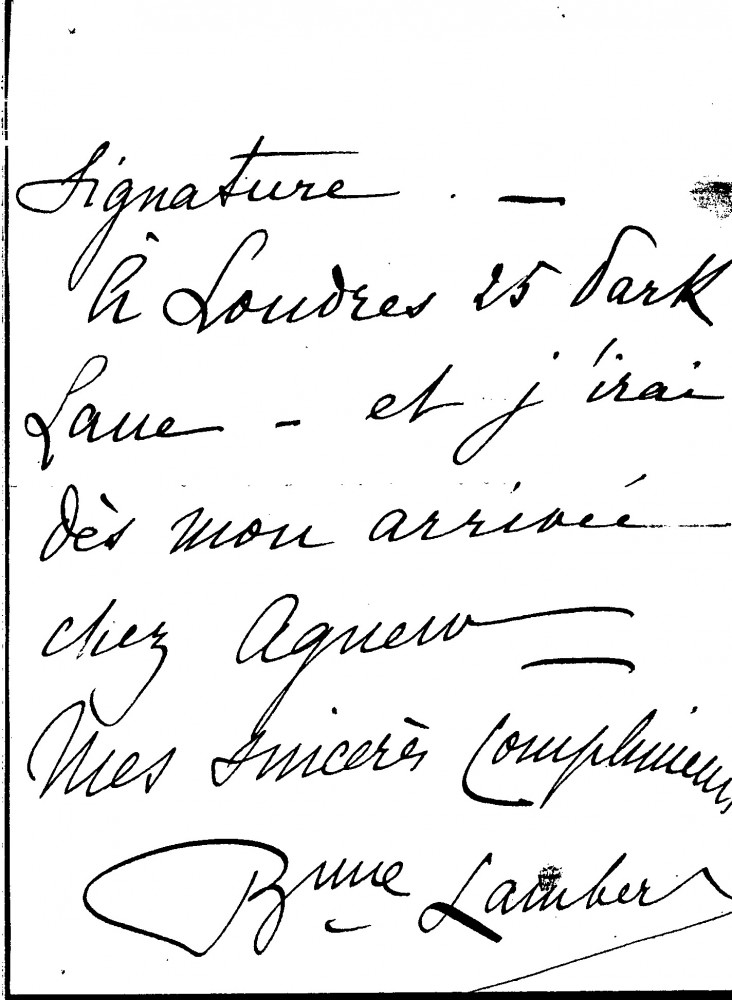 Signature. —
à Londres 25 Park
Lane - et j'irai
dès mon arrivée
chez Agnew —
Mes sincères compliments
Bnne Lambert